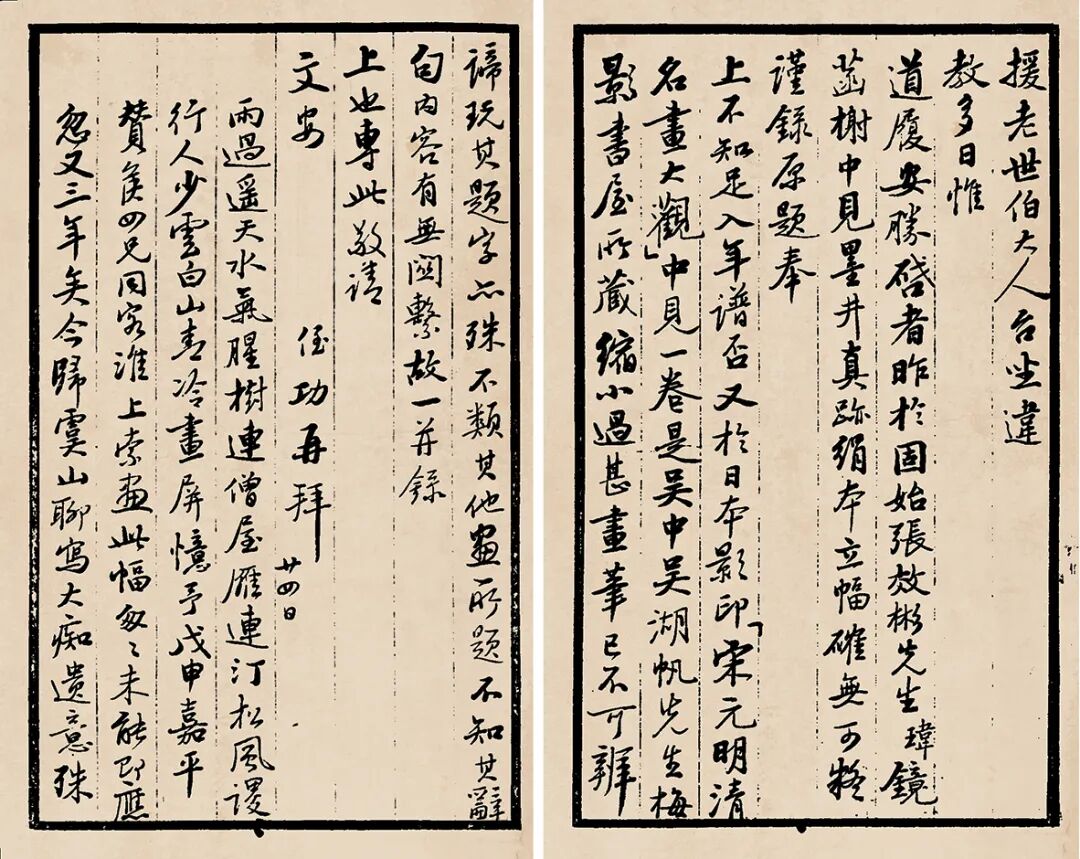 援老世伯大人台坐違
教多日惟
道履安勝啓者昨於固始張效彬先生瑋鏡
菡榭中見墨井真跡絹本立幅確無可疑
謹錄原題奉
上不知足入年譜否又於日本影印「宋元明清
名畫大觀」中見一卷是吴中吴湖帆先生梅
影書屋所藏縮小過甚畫筆已不可辨
諦玩其題字亦殊不類其他畫所題不知其辭
句内容有無関繫故一并錄
上也專此敬請
文安 侄功再拜 廿四日
雨過遥天水氣腥樹連僧屋雁連汀松風謖
行人少雲白山青冷畫屏憶予戊申嘉平
賛侯四兄同客淮上索畫此幅匆匆未能即應
忽又三年矣今歸虞山聊寫大痴遺意殊